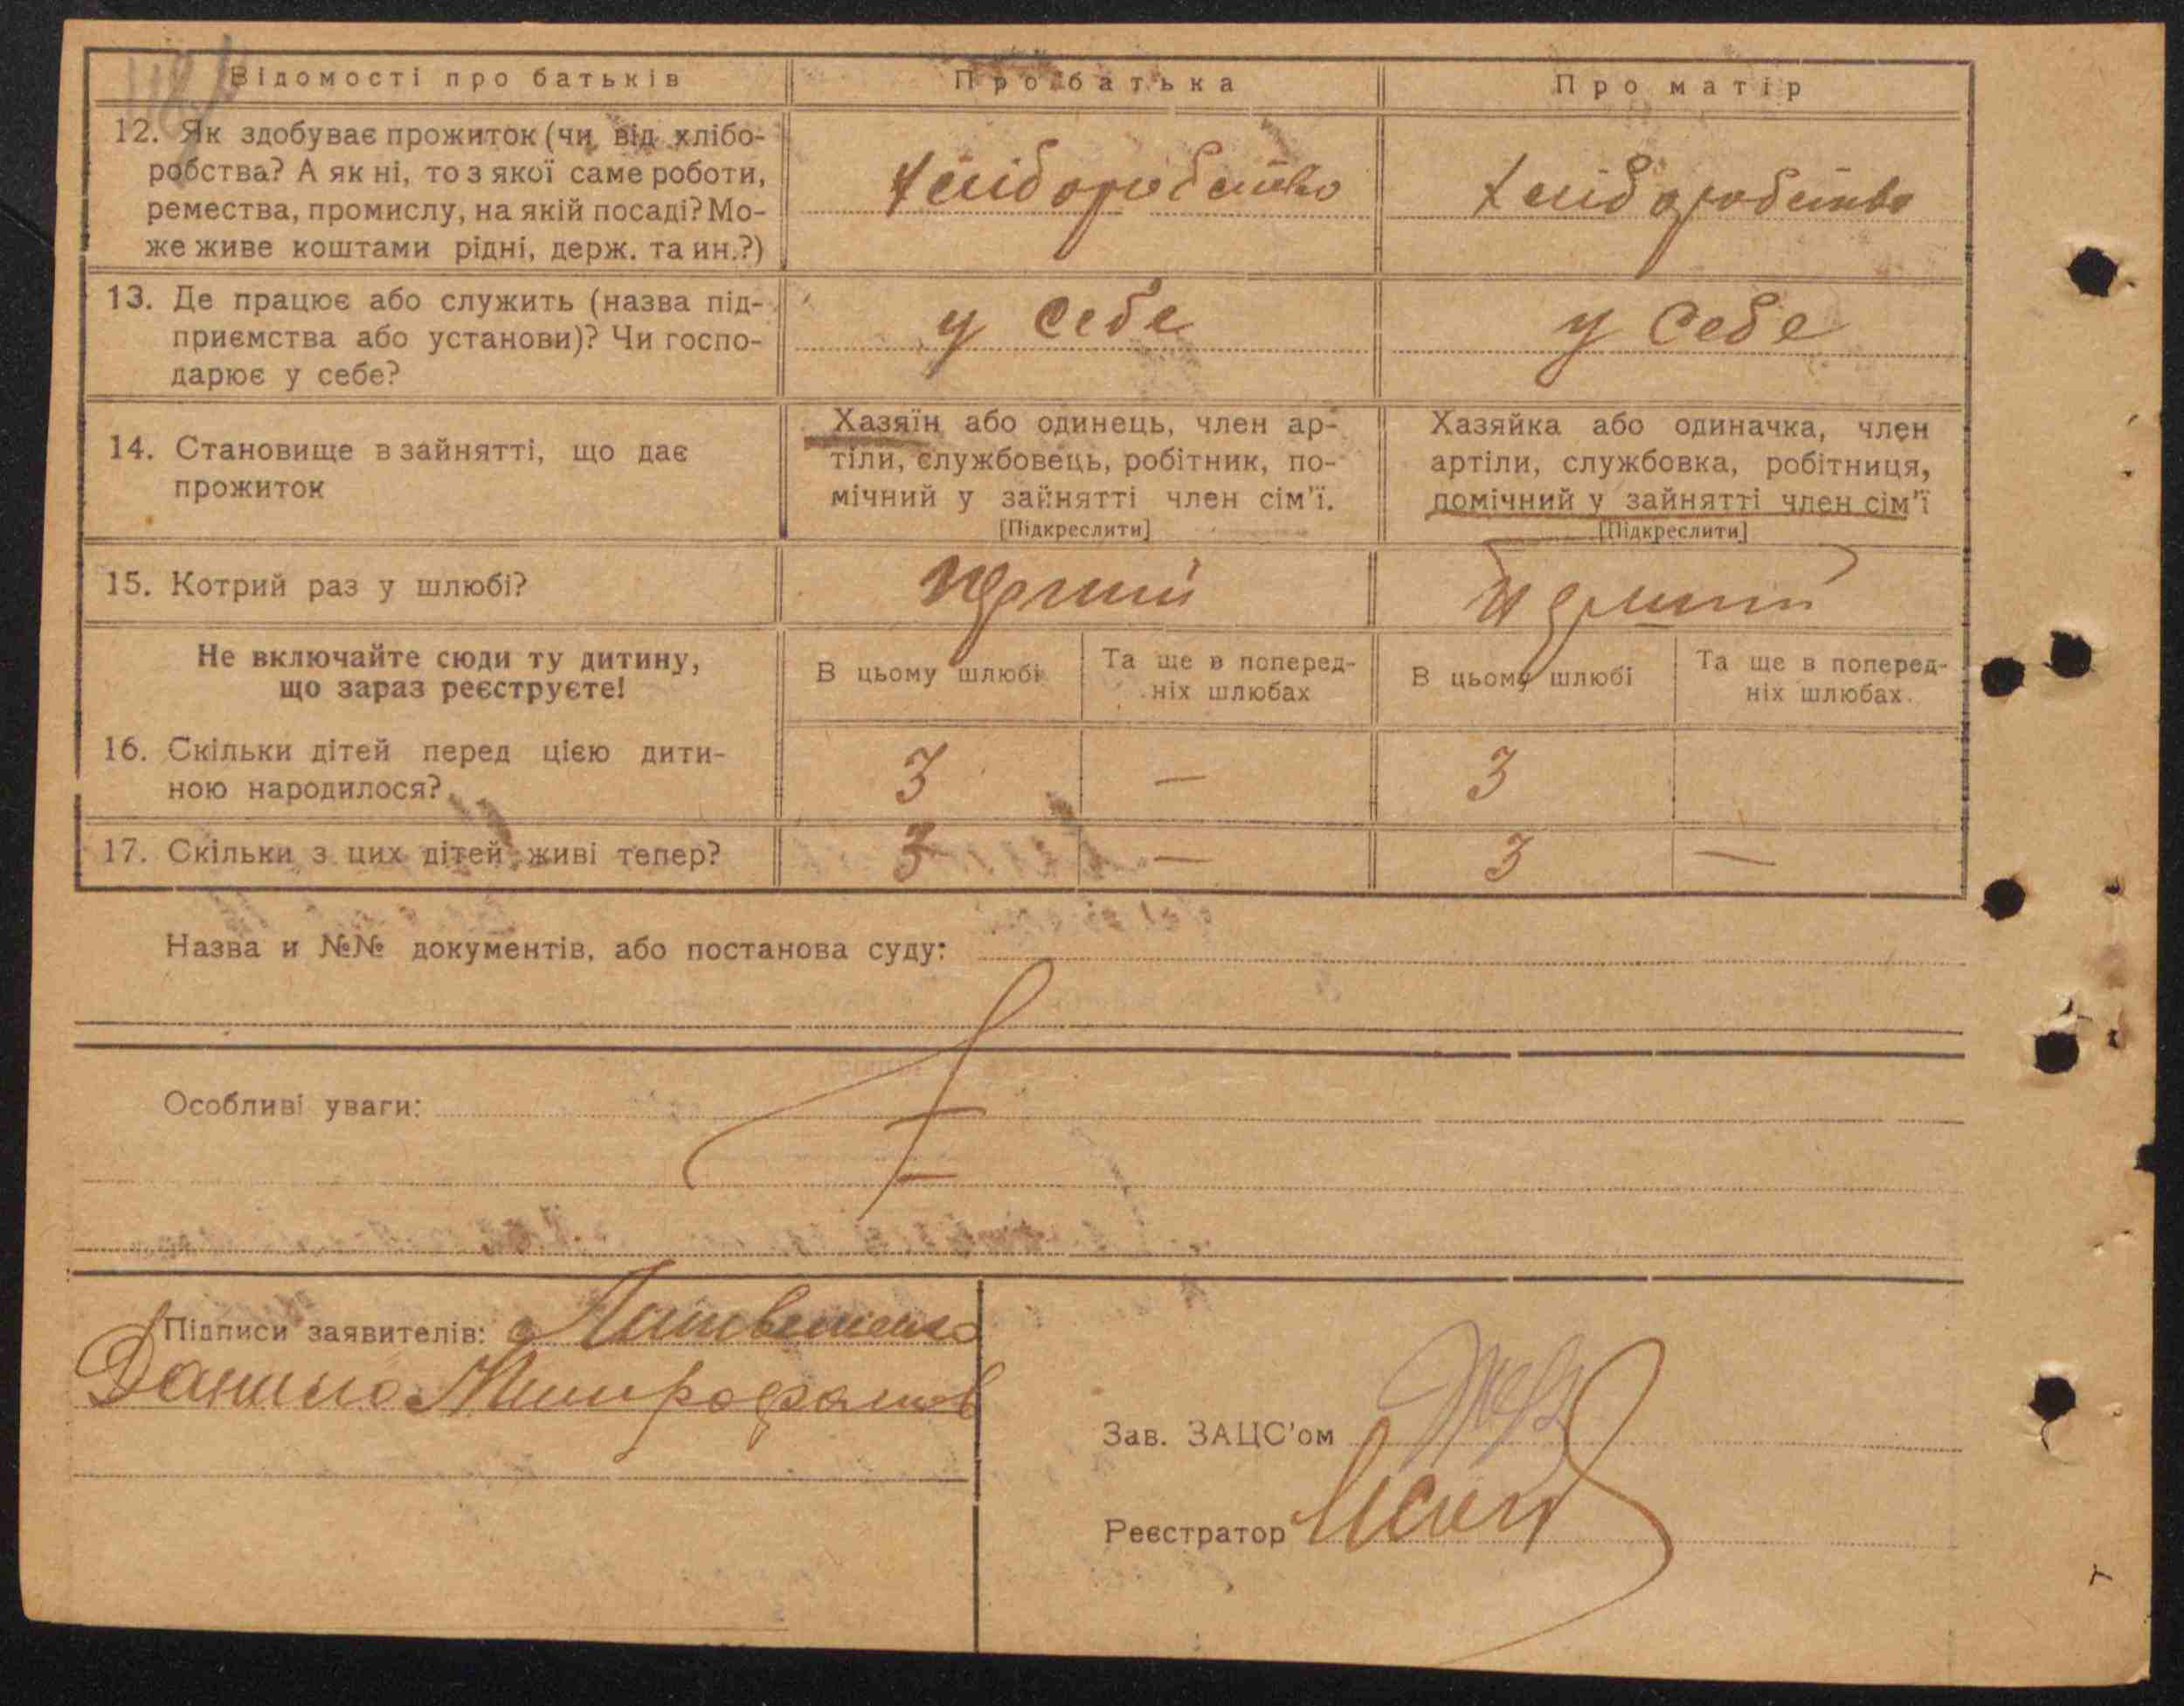 Відомості про батьків
Про батька
Про матір
12. Як здобуває прожиток (чи від хлібо-
робства? А як ні, то з якої саме роботи,
ремества, промислу, на якій посаді? Мо-
же живе коштами рідні, держ. та ин.?)
хліборобство
хліборобство
13. Де працює або служить (назва під-
приємства або установи)? Чи госпо-
дарює у себе?
у себе
у себе
14. Становище в зайнятті, що дає
прожиток
Хазяїн або одинець, член ар-
тіли, службовець, робітник, по-
мічний у зайнятті член сім'ї.
[Підкреслити]
Хазяйка або одиначка, член
артіли, службовка, робітниця,
помічний у зайнятті член сім'ї
[Підкреслити]
15. Котрий раз у шлюбі?
Не включайте сюди ту дитину,
що зараз реєструєте!
В цьому шлюбі
Та ще в поперед-
ніх шлюбах
В цьому шлюбі
Та ще в поперед-
ніх шлюбах.
16. Скільки дітей перед цією дити-
ною народилося?
3
—
3
17. Скільки з цих дітей живі тепер?
3
—
3
—
Назва и №№ документів, або постанова суду:
Особливі уваги:
Підписи заявителів:
Данило Митрофанов
Зав. ЗАЦС'ом
Реєстратор